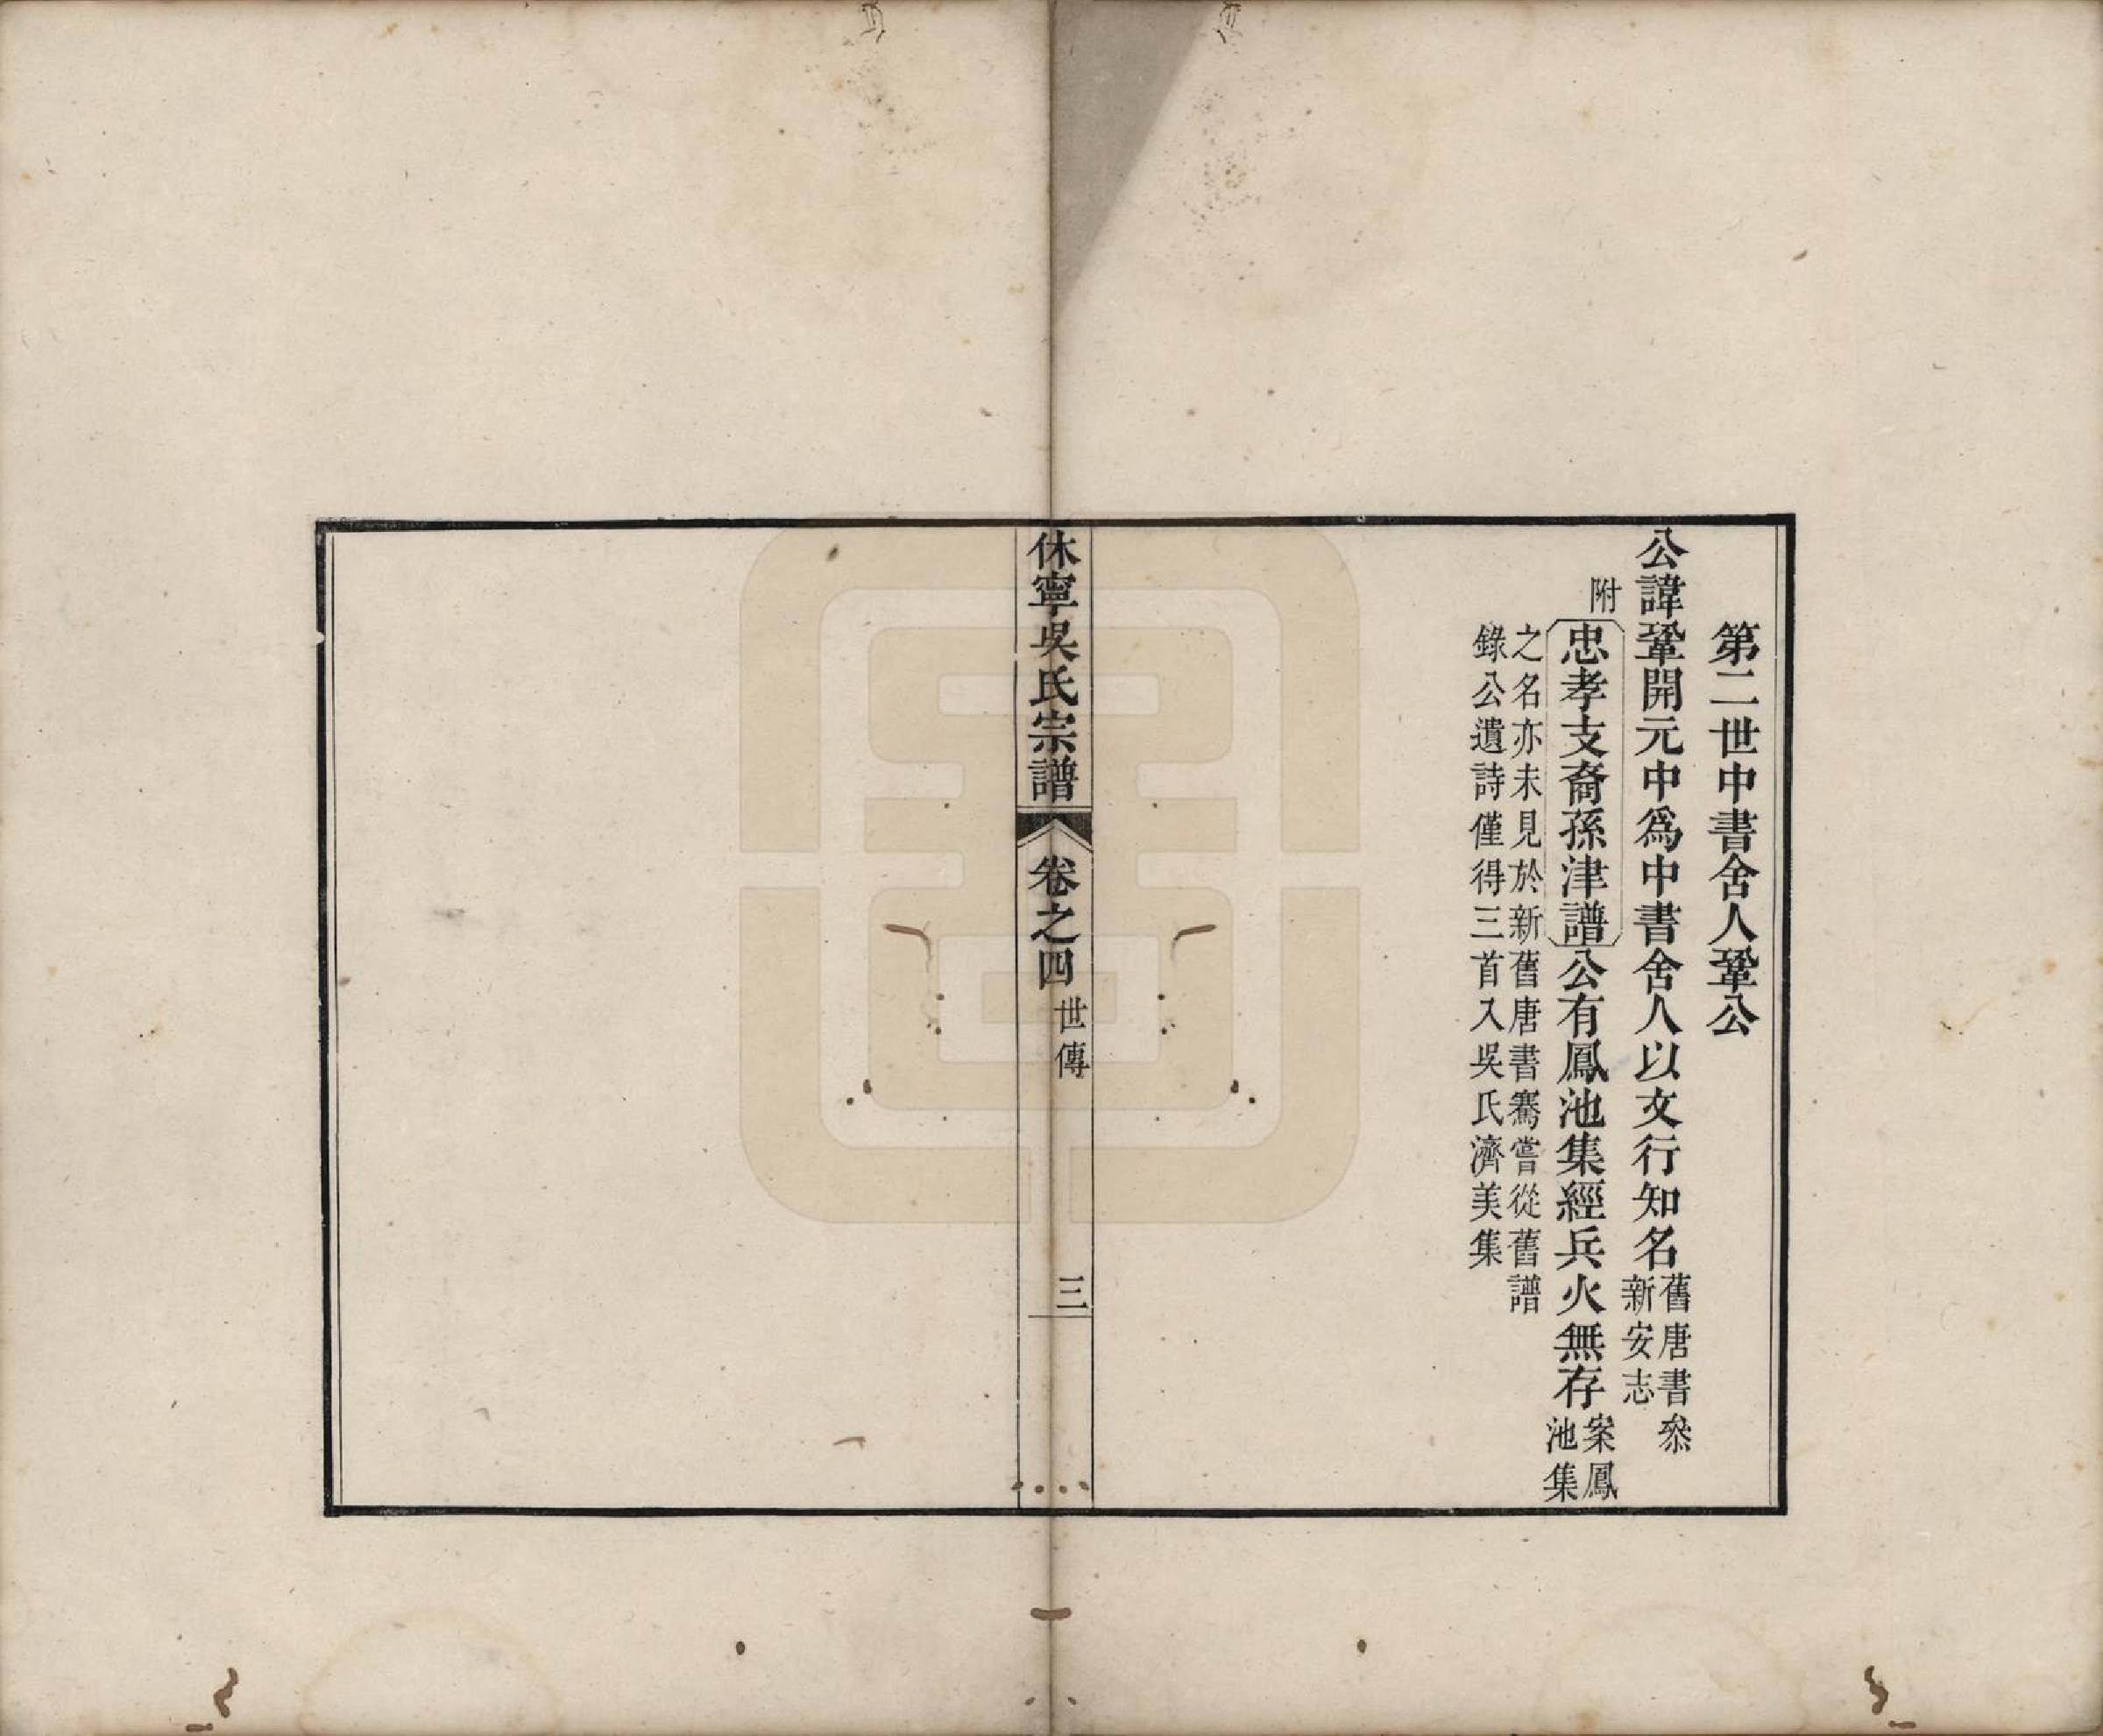 第二世中書舍人鞏公
公諱鞏開元中爲中書舍人以文行知名舊唐書叅
新安志
附
忠孝支裔孫津譜公有鳳池集經兵火無存案鳳
池集
之名亦未見於新舊唐書騫嘗從舊譜
錄公遺詩僅得三首入吳氏濟美集
休寧吳氏宗譜
卷之四
世傳
三